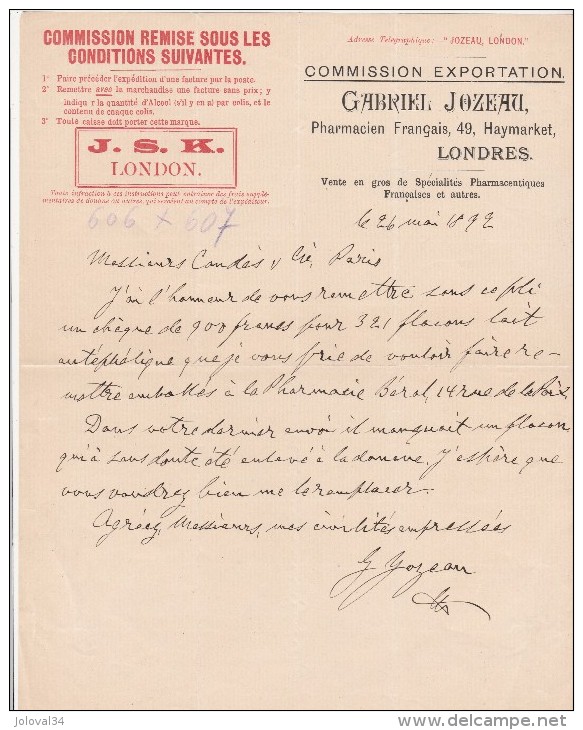 COMMISSION REMISE SOUS LES
CONDITIONS SUIVANTES.
1° Faire précéder l'expédition d'une facture par la poste.
2° Remettre avec la marchandise une facture sans prix; y
indiquer la quantité d'Alcool (s'il y en a) par colis, et le
contenu de chaque colis.
3° Toute caisse doit porter cette marque.
J. S. K.
LONDON.
Toute infraction à ces instructions peut entraîner des frais supplé-
mentaires de douane ou autres, qui seraient au compte de l'expéditeur.
606 x 607
Adresse Télégraphique: "JOZEAU, LONDON."
COMMISSION EXPORTATION.
GABRIEL JOZEAU,
Pharmacien Français, 49, Haymarket,
LONDRES.
Vente en gros de Spécialités Pharmaceutiques
Françaises et autres.
le 26 mai 1892
Messieurs Candès & Cie, Paris
J'ai l'honneur de vous remettre sous ce pli
un chèque de 900 francs pour 321 flacons lait
antéphélique que je vous prie de vouloir faire re-
mettre emballés à la Pharmacie Béral, 14 rue de la Paix.
Dans votre dernier envoi il manquait un flacon
qui a sans doute été enlevé à la douane. J'espère que
vous voudrez bien me le remplacer.
Agréez, Messieurs, mes civilités empressées
G Jozeau
joloval34
delcampe.net